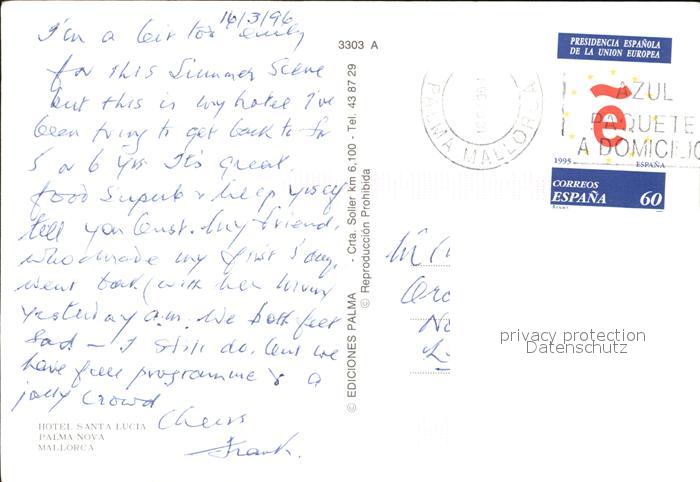 14/3/96
I'm a bit too early
for this Summer Scene
but this is my hotel I've
been trying to get back to for
5 or 6 yrs It's great
food Superb &
tell you last. My friend,
who made my first 5 days,
went back (with her
yesterday a.m. We both feel
sad – I still do. But we
have full programme & a
jolly crowd
Cheers
Frank.
HOTEL SANTA LUCIA
PALMA NOVA
MALLORCA
3303 A
© EDICIONES PALMA - Crta. Soller km 6,100 - Tel. 43 87 29
© Reproducción Prohibida
PALMA MALLORCA
AZUL
PAQUETE
A DOMICILIO
PRESIDENCIA ESPAÑOLA
DE LA UNION EUROPEA
ẽ
1995 ESPAÑA
CORREOS
ESPAÑA 60
privacy protection
Datenschutz